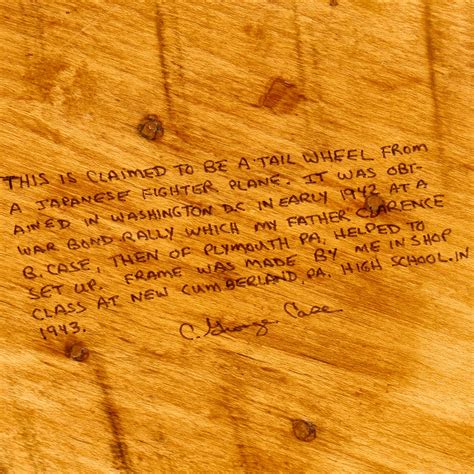 THIS IS CLAIMED TO BE A TAIL WHEEL FROM
A JAPANESE FIGHTER PLANE. IT WAS OBT-
AINED IN WASHINGTON D.C IN EARLY 1942 AT A
WAR BOND RALLY WHICH MY FATHER CLARENCE
B. CASE, THEN OF PLYMOUTH PA. HELPED TO
SET UP. FRAME WAS MADE BY ME IN SHOP
CLASS AT NEW CUMBERLAND, PA. HIGH SCHOOL. IN
1943.
C. George Case